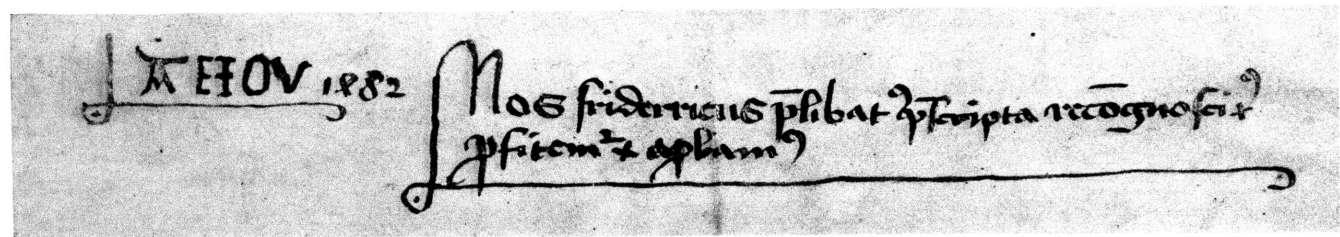 AEIOV 1482 Nos fridericus p̄libatꝰ p̄scripta recōgnoscimꝰ
ꝓfitemᷣ & apꝓbamꝰ